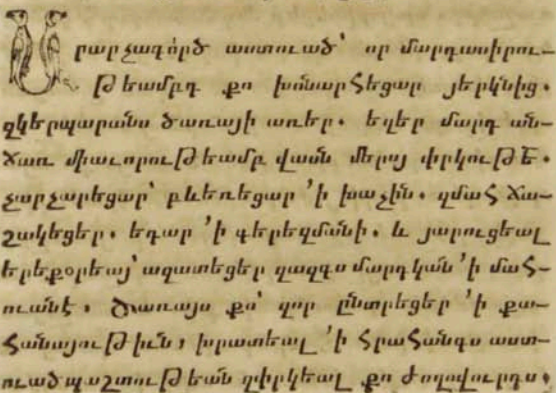 Արարչագործ աստուած՝ որ մարդասիրու-
թեամբդ քո խոնարհեցար յերկնից.
զկերպարանս ծառայի առեր. եղեր մարդ ան-
ճառ միաւորութեամբ վասն մերոյ փրկութե.
չարչարեցար՝ բևեռեցար ՚ի խաչին. զմահ ճա-
շակեցեր. եդար ՚ի գերեզմանի. և յարուցեալ
երեքօրեայ՝ ազատեցեր զազգս մարդկան ՚ի մահ-
ուանէ, Ծառայս քո՝ զոր ընտրեցեր ՚ի քա-
հանայութիւն, խրատեալ ՚ի հրահանգս աստ-
ուածպաշտութեան զփրկեալ քո ժողովուրդս.